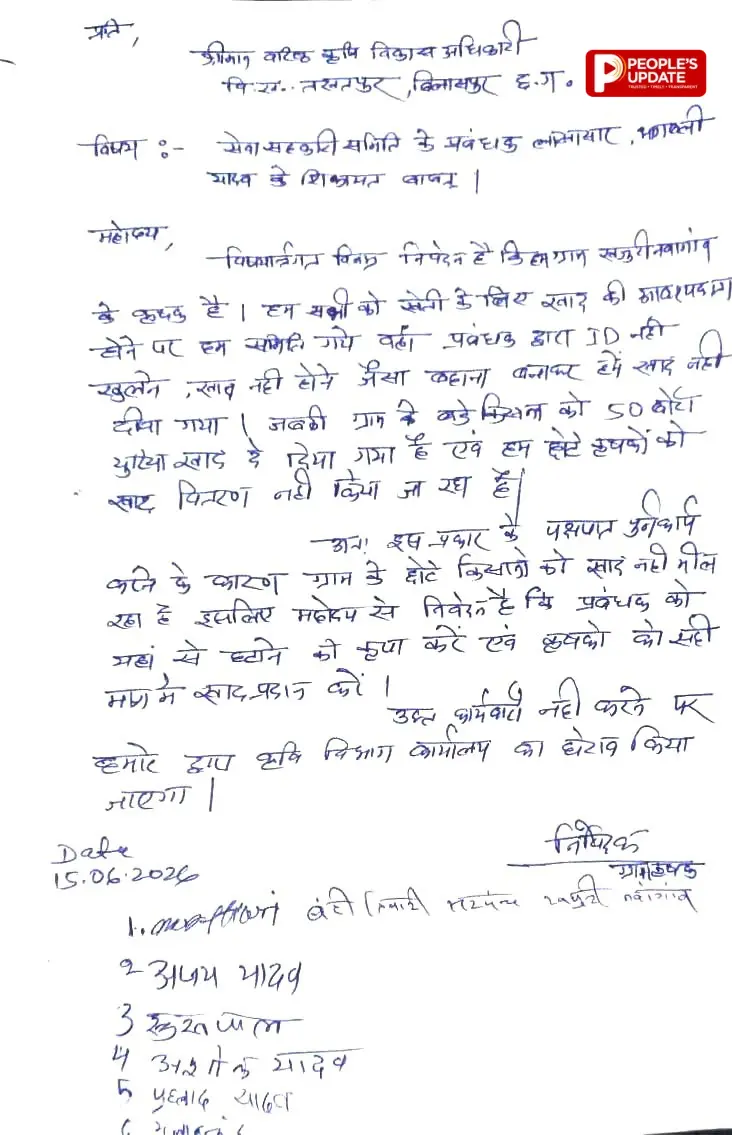 प्रति,
श्रीमान वरिष्ठ कृषि विकास अधिकारी
वि.ख. तखतपुर, बिलासपुर छ.ग.
PEOPLE'S
UPDATE
TRUSTED • TIMELY • TRANSPARENT
विषय :- सेवा सहकारी समिति के प्रबंधक
यादव के शिकायत बाबत् |
महोदय,
विषयार्न्तगत विनम्र निवेदन है कि हम ग्राम खजुरी नवागांव
के कृषक है | हम सभी को खेती के लिए खाद की आवश्यकता
होने पर हम समिति गये वहाँ प्रबंधक द्वारा ID नही
खुलने, खाद नही होने जैसा बहाना बनाकर हमें खाद नही
दीया गया | जबकी ग्राम के बडे किसान को 50 बोरी
युरिया खाद दे दिया गया है एवं हम छोटे कृषकों को
खाद वितरण नही किया जा रहा है|
अतः इस प्रकार के पक्षपात पुर्न कार्य
करने के कारण ग्राम के छोटे किसानो को खाद नही मील
रहा है इसलिए महोदय से निवेदन है कि प्रबंधक को
यहां से हटाने की कृपा करें एवं कृषको को सही
मात्रा मे खाद प्रदान करें |
उक्त कार्यवाही नही करने पर
हमारे द्वारा कृषि विभाग कार्यालय का घेराव किया
जाएगा |
Date
15.06.2026
निवेदक
ग्राम कृषक
1. बंटी तिवारी सरपंच खजुरी नवागांव
2 अजय यादव
3 पाल
4 यादव
5 प्रहलाद यादव
6